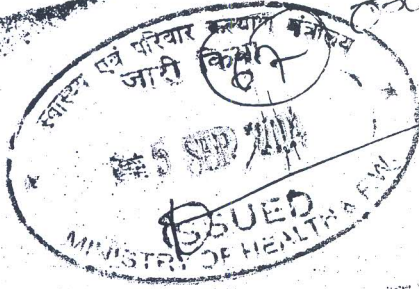 स्वास्थ्य एवं परिवार कल्याण मंत्रालय
जारी किया
5 SEP
ISSUED
MINISTRY OF HEALTH & F.W.